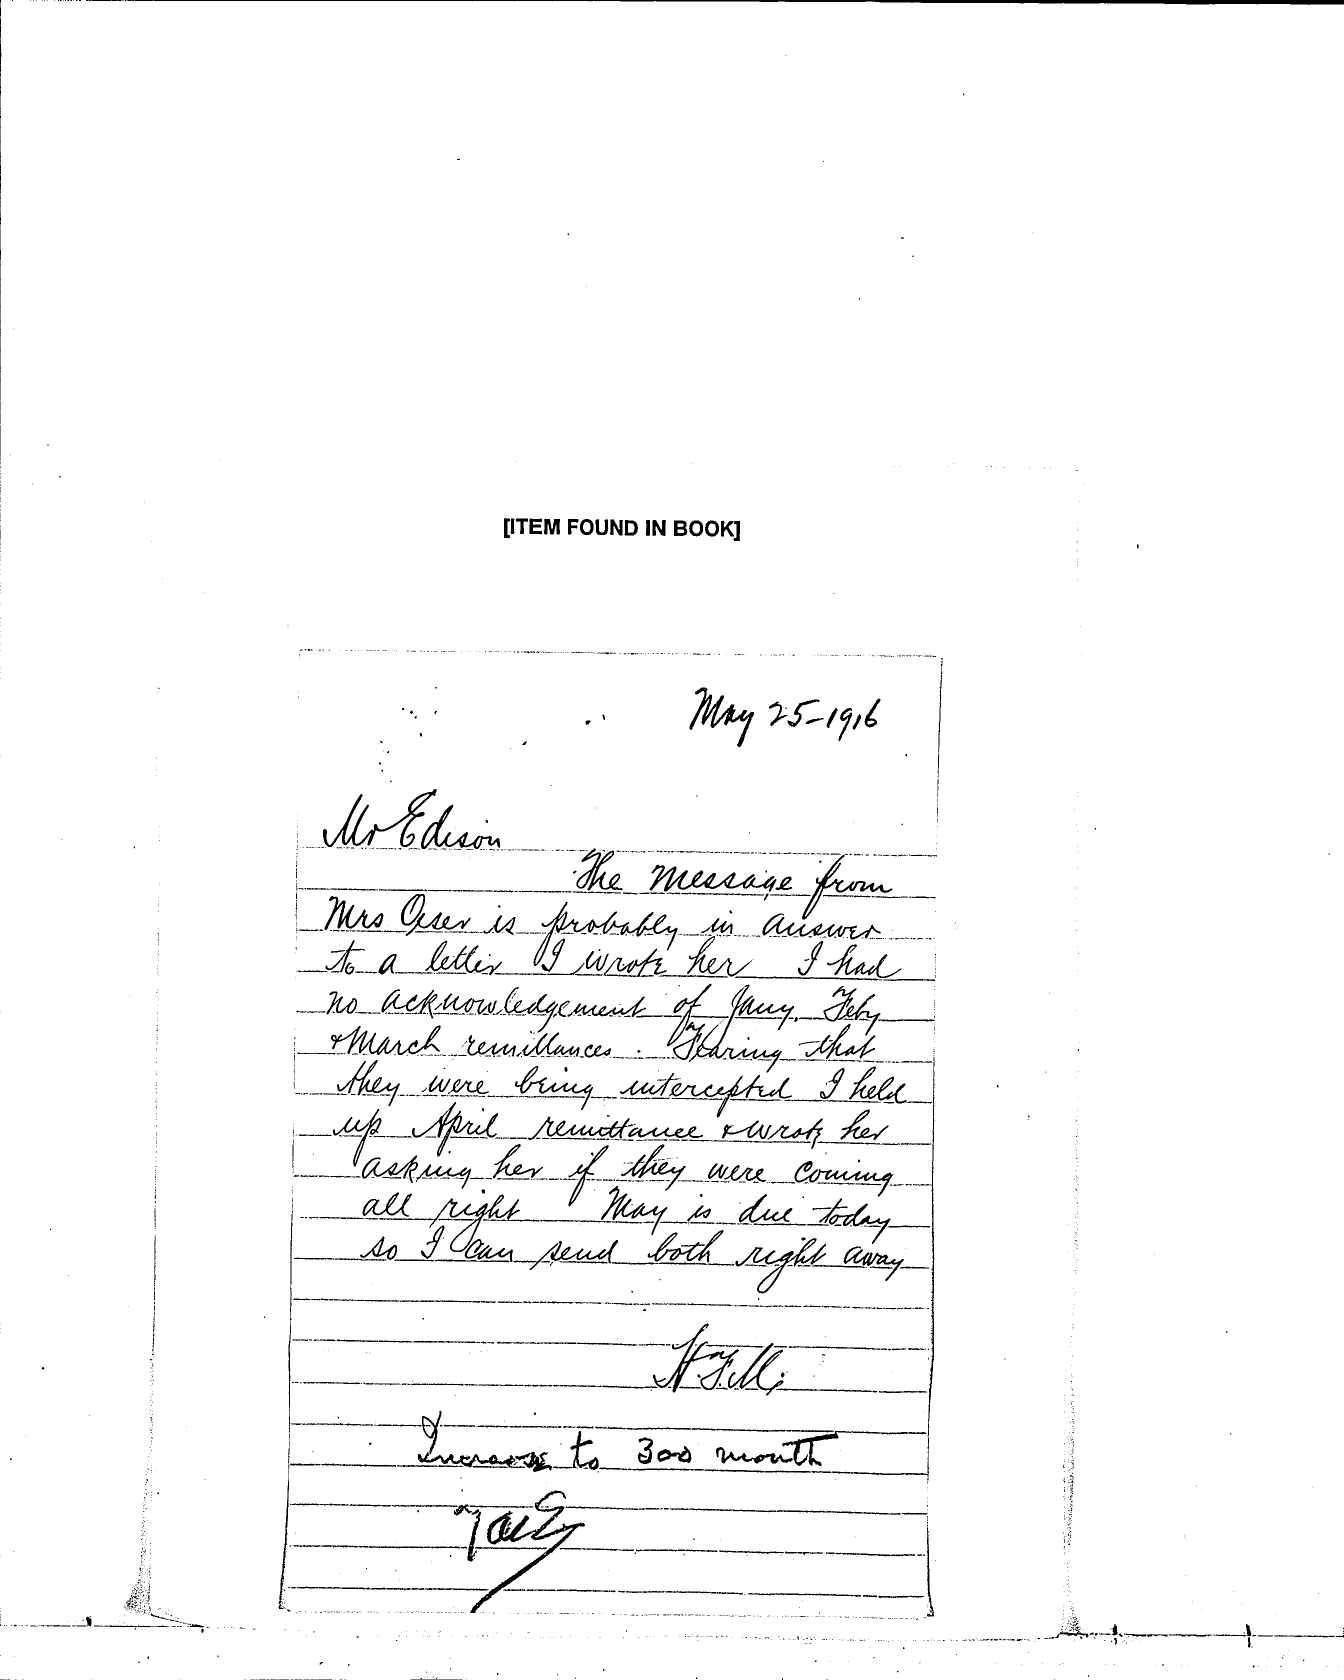 [ITEM FOUND IN BOOK]
May 25-1916
Mr Edison
The message from
Mrs Oeser is probably in answer
to a letter I wrote her I had
no acknowledgement of Jany. Feby
& March remittances. Fearing that
they were being intercepted I held
up April remittance & wrote her
asking her if they were coming
all right May is due today
so I can send both right away
H.F.M.
Increase to 300 month
TAE